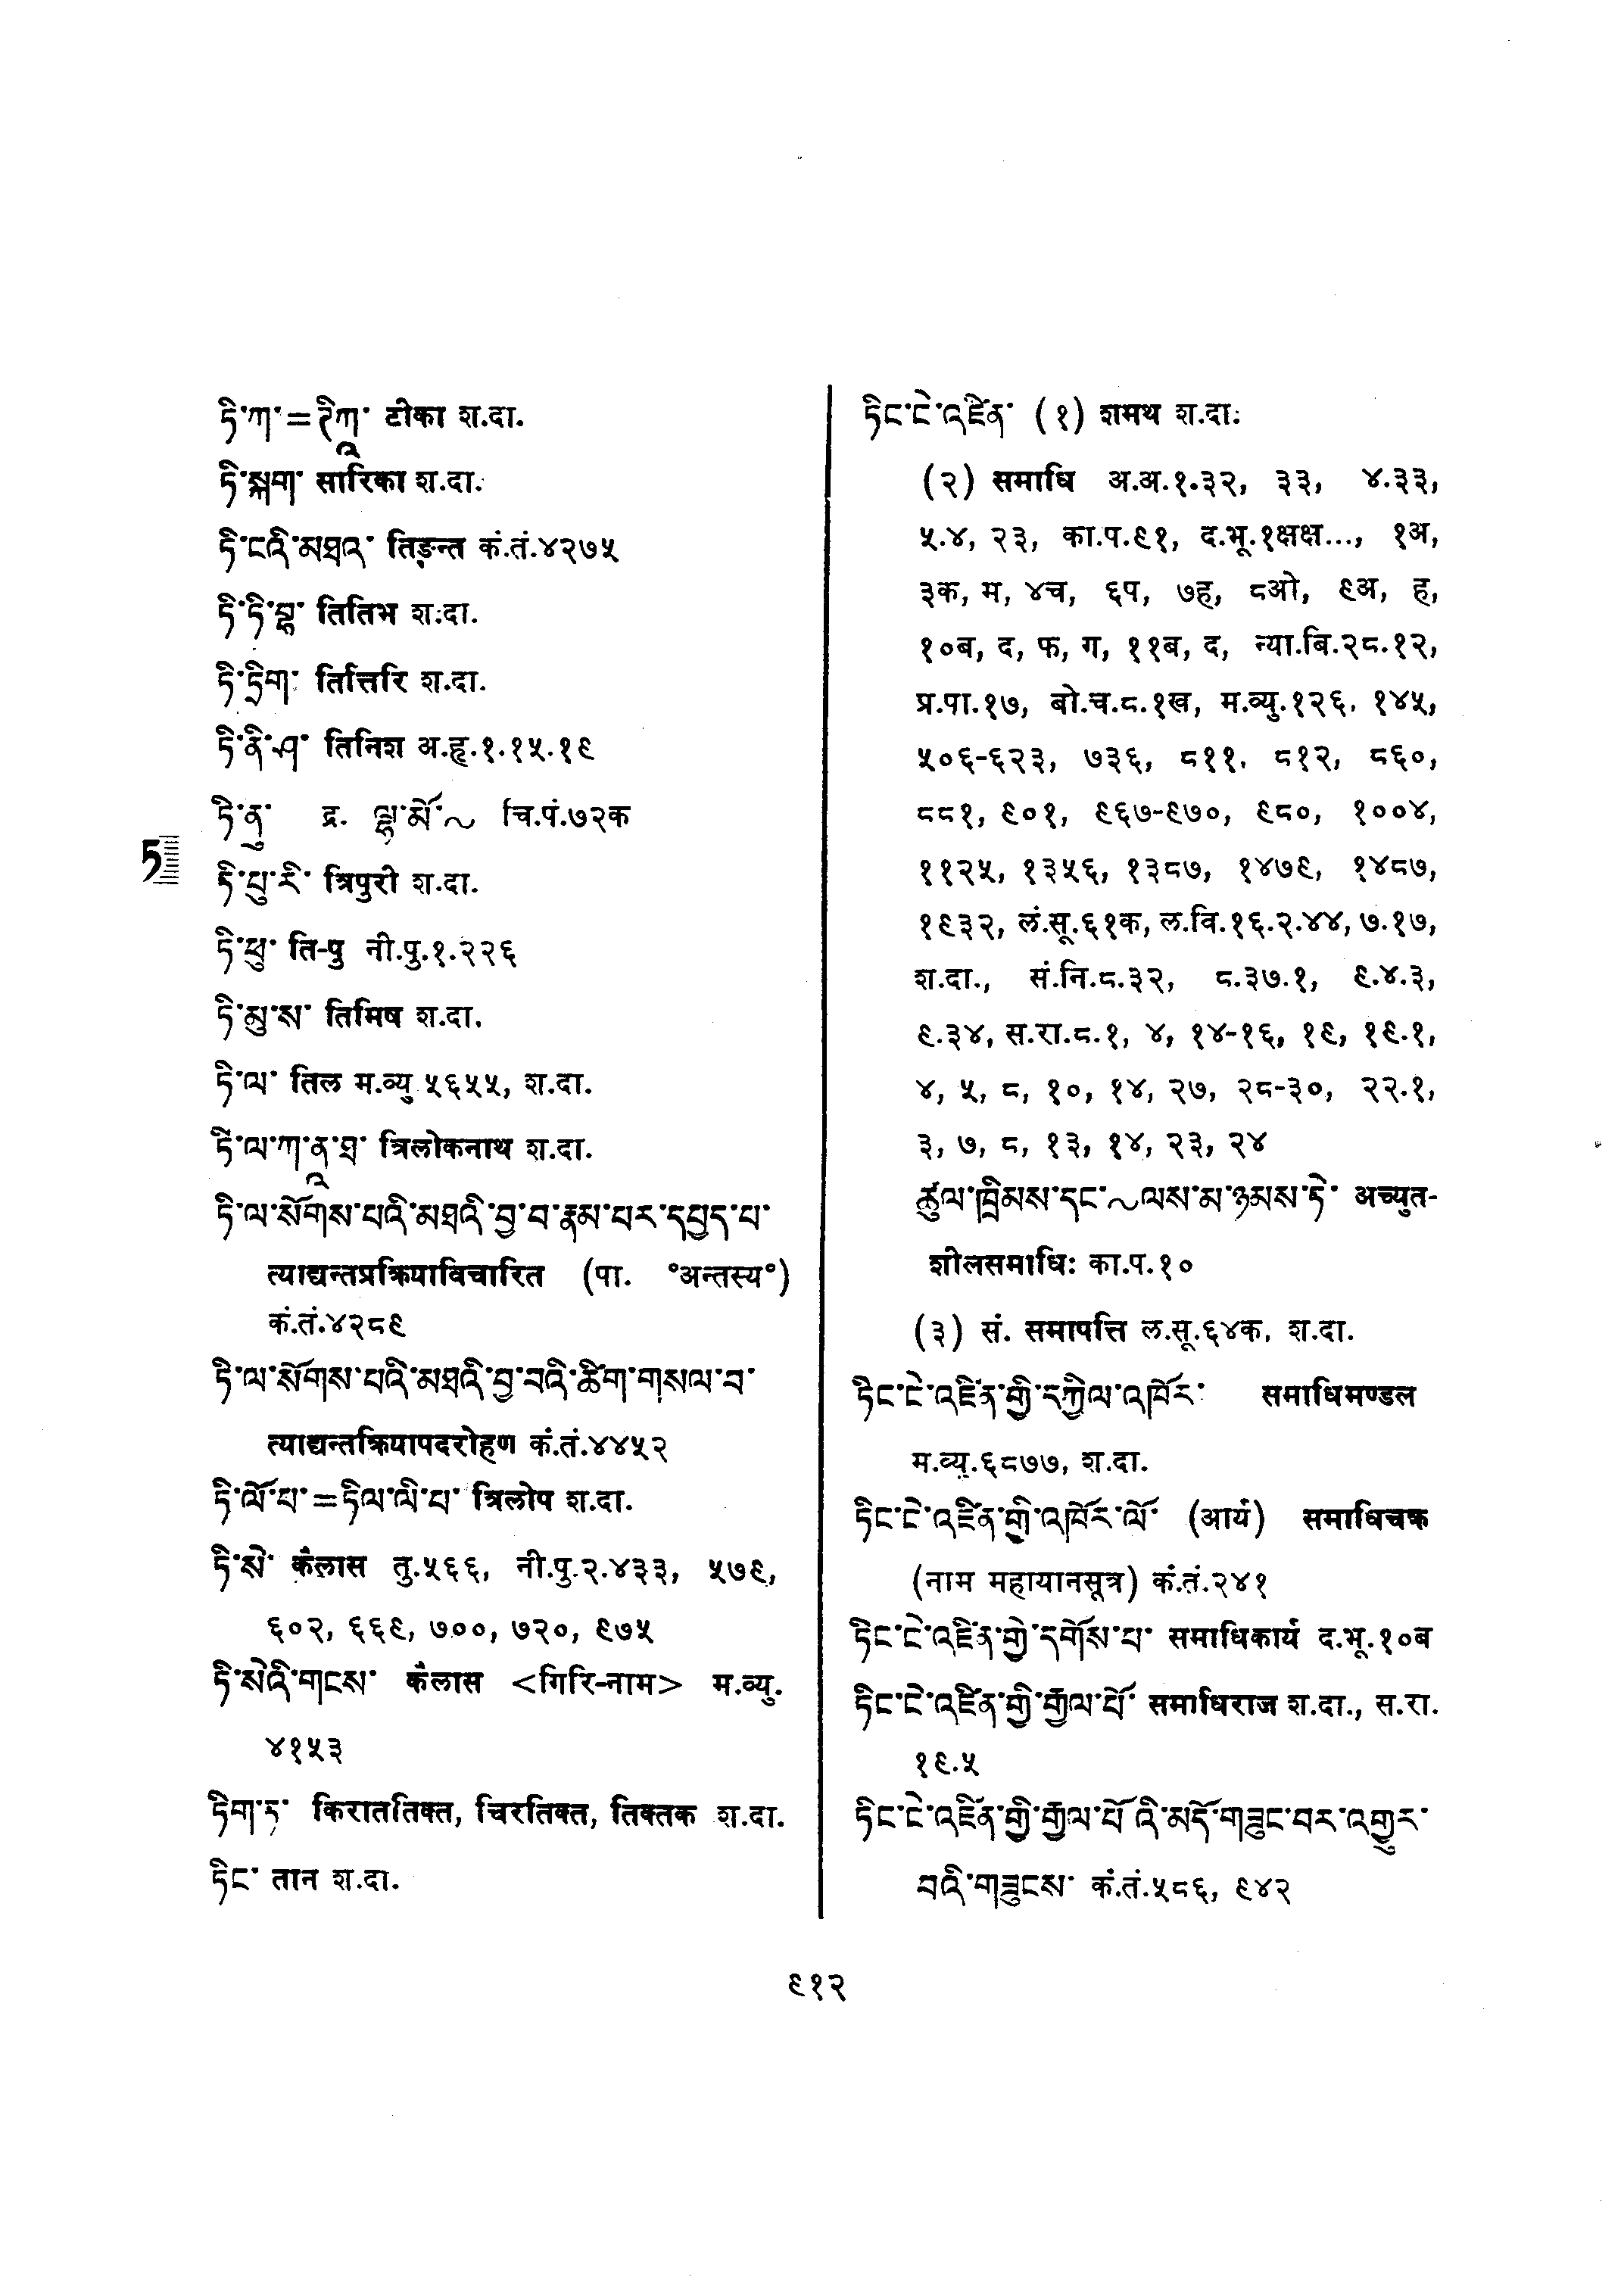 ཏི་ཀ་=ཊཱིཀཱ་ टीका श.दा.
ཏི་སྐག་ सारिका श.दा.
ཏི་ངའི་མཐའ་ तिङन्त कं.तं.४२७५
ཏི་ཏི་བྷ་ तितिभ श.दा.
ཏི་ཏྲིག་ तित्तिरि श.दा.
ཏི་ནི་ཤ་ तिनिश अ.हृ.१.१५.१९
ཏི་ནུ་ द्र. ལྷ་མོ་~ चि.पं.७२क
ཏི་པུ་རི་ त्रिपुरी श.दा.
ཏི་ཕུ་ ति-पु नी.पु.१.२२६
ཏི་མུ་ས་ तिमिष श.दा.
ཏི་ལ་ तिल म.व्यु ५६५५, श.दा.
ཏི་ལ་ཀ་ནཱ་ཐ་ त्रिलोकनाथ श.दा.
ཏི་ལ་སོགས་པའི་མཐའི་བྱ་བ་རྣམ་པར་དབྱད་པ་
त्याद्यन्तप्रक्रियाविचारित (पा. °अन्तस्य°)
कं.तं.४२८९
ཏི་ལ་སོགས་པའི་མཐའི་བྱ་བའི་ཚིག་གསལ་བ་
त्याद्यन्तक्रियापदरोहण कं.तं.४४५२
ཏི་ལོ་པ་=ཏིལ་ལི་པ་ त्रिलोप श.दा.
ཏི་སེ་ कैलास तु.५६६, नी.पु.२.४३३, ५७९,
६०२, ६६९, ७००, ७२०, ९७५
ཏི་སེའི་གངས་ कैलास <गिरि-नाम> म.व्यु.
४१५३
ཏིག་ཏ་ किराततिक्त, चिरतिक्त, तिक्तक श.दा.
ཏིང་ तान श.दा.
ཏ
ཏིང་ངེ་འཛིན་ (१) शमथ श.दा.
(२) समाधि अ.अ.१.३२, ३३, ४.३३,
५.४, २३, का.प.९१, द.भू.१क्षक्ष..., १अ,
३क, म, ४च, ६प, ७ह, ८ओ, ९अ, ह,
१०ब, द, फ, ग, ११ब, द, न्या.बि.२८.१२,
प्र.पा.१७, बो.च.८.१ख, म.व्यु.१२६, १४५,
५०६-६२३, ७३६, ८११, ८१२, ८६०,
८८१, ९०१, ९६७-९७०, ९८०, १००४,
११२५, १३५६, १३८७, १४७९, १४८७,
१९३२, लं.सू.६१क, ल.वि.१६.२.४४, ७.१७,
श.दा., सं.नि.८.३२, ८.३७.१, ९.४.३,
९.३४, स.रा.८.१, ४, १४-१६, १९, १९.१,
४, ५, ८, १०, १४, २७, २८-३०, २२.१,
३, ७, ८, १३, १४, २३, २४
ཚུལ་ཁྲིམས་དང་~ལས་མ་ཉམས་ཏེ་ अच्युत-
शीलसमाधिः का.प.१०
(३) सं. समापत्ति ल.सू.६४क, श.दा.
ཏིང་ངེ་འཛིན་གྱི་དཀྱིལ་འཁོར་ समाधिमण्डल
म.व्यु.६८७७, श.दा.
ཏིང་ངེ་འཛིན་གྱི་འཁོར་ལོ་ (आर्य) समाधिचक्र
(नाम महायानसूत्र) कं.तं.२४१
ཏིང་ངེ་འཛིན་གྱི་དགོས་པ་ समाधिकार्य द.भू.१०ब
ཏིང་ངེ་འཛིན་གྱི་རྒྱལ་པོ་ समाधिराज श.दा., स.रा.
१९.५
ཏིང་ངེ་འཛིན་གྱི་རྒྱལ་པོ འི་མདོ་གཟུང་བར་འགྱུར་
བའི་གཟུངས་ कं.तं.५८६, ९४२
९१२